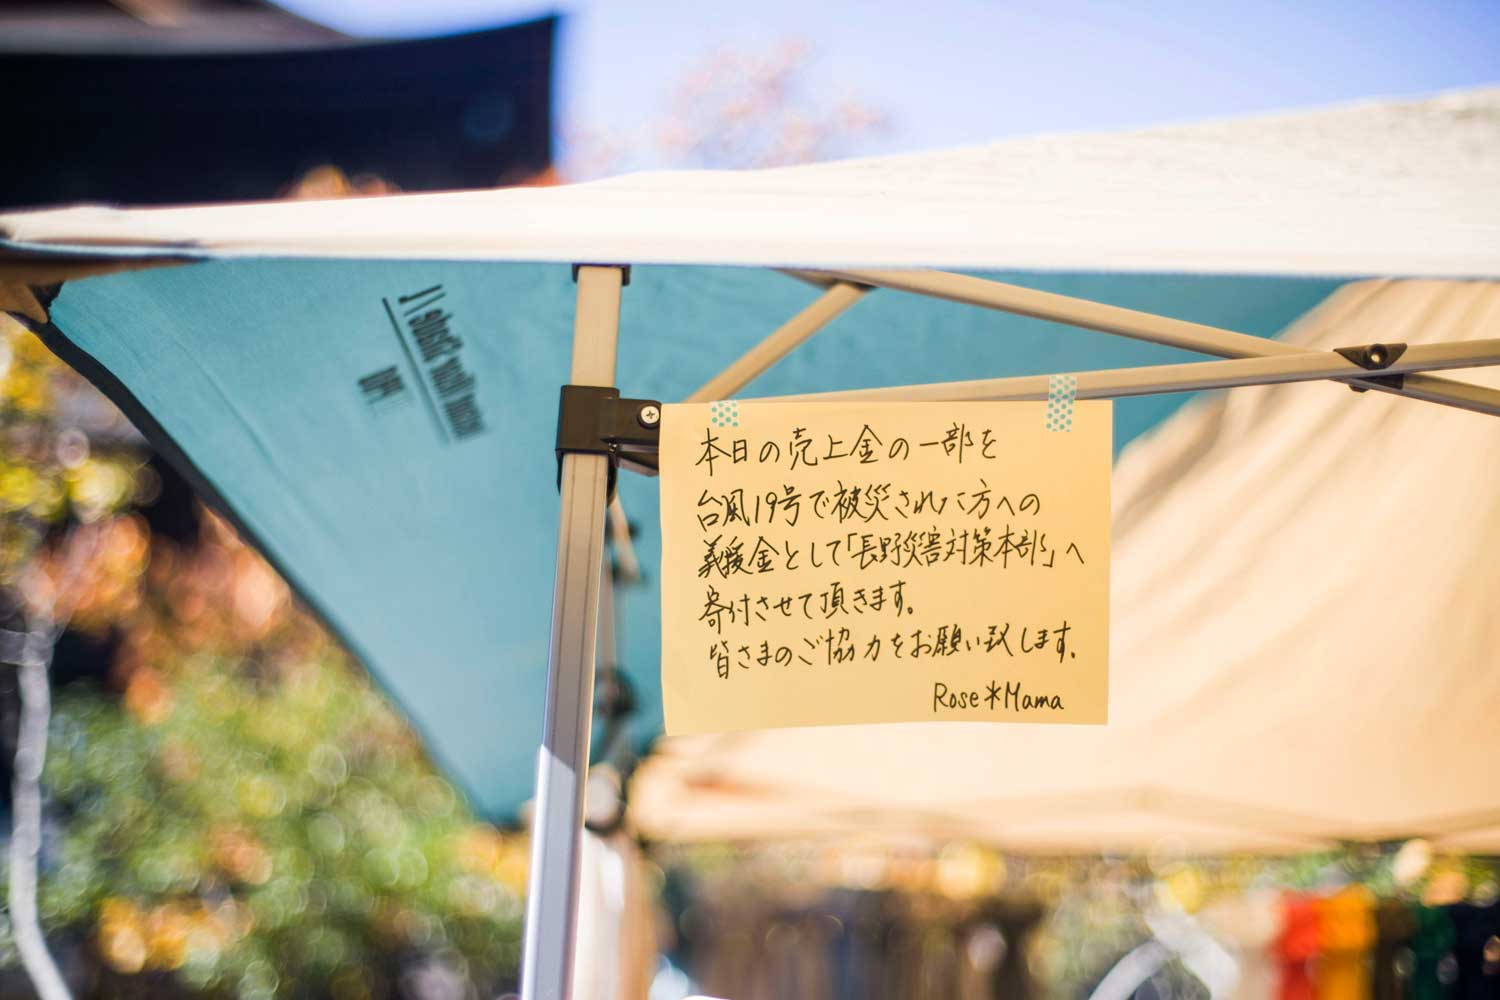 本日の売上金の一部を
台風19号で被災された方への
義援金として「長野災害対策本部」へ
寄付させて頂きます。
皆さまのご協力をお願い致します。
Rose*Mama